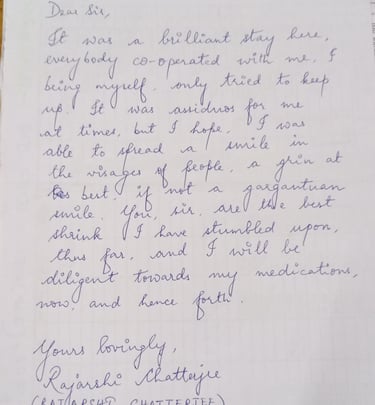 Dear Sir,
It was a brilliant stay here,
everybody co-operated with me. I
being myself, only tried to keep
up. It was assiduos for me
at times, but I hope, I was
able to spread a smile in
the visages of people, a grin at
best, if not a gargantuan
smile. You, sir, are the best
shrink I have stumbled upon,
thus far, and I will be
diligent towards my medications,
now, and hence forth.
Yours lovingly,
Rajarshi Chatterjee
(RAJARSHI CHATTERJEE)